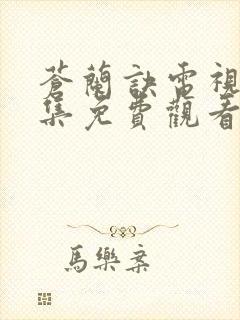 蒼蘭訣電視
集免費觀看
馬樂案